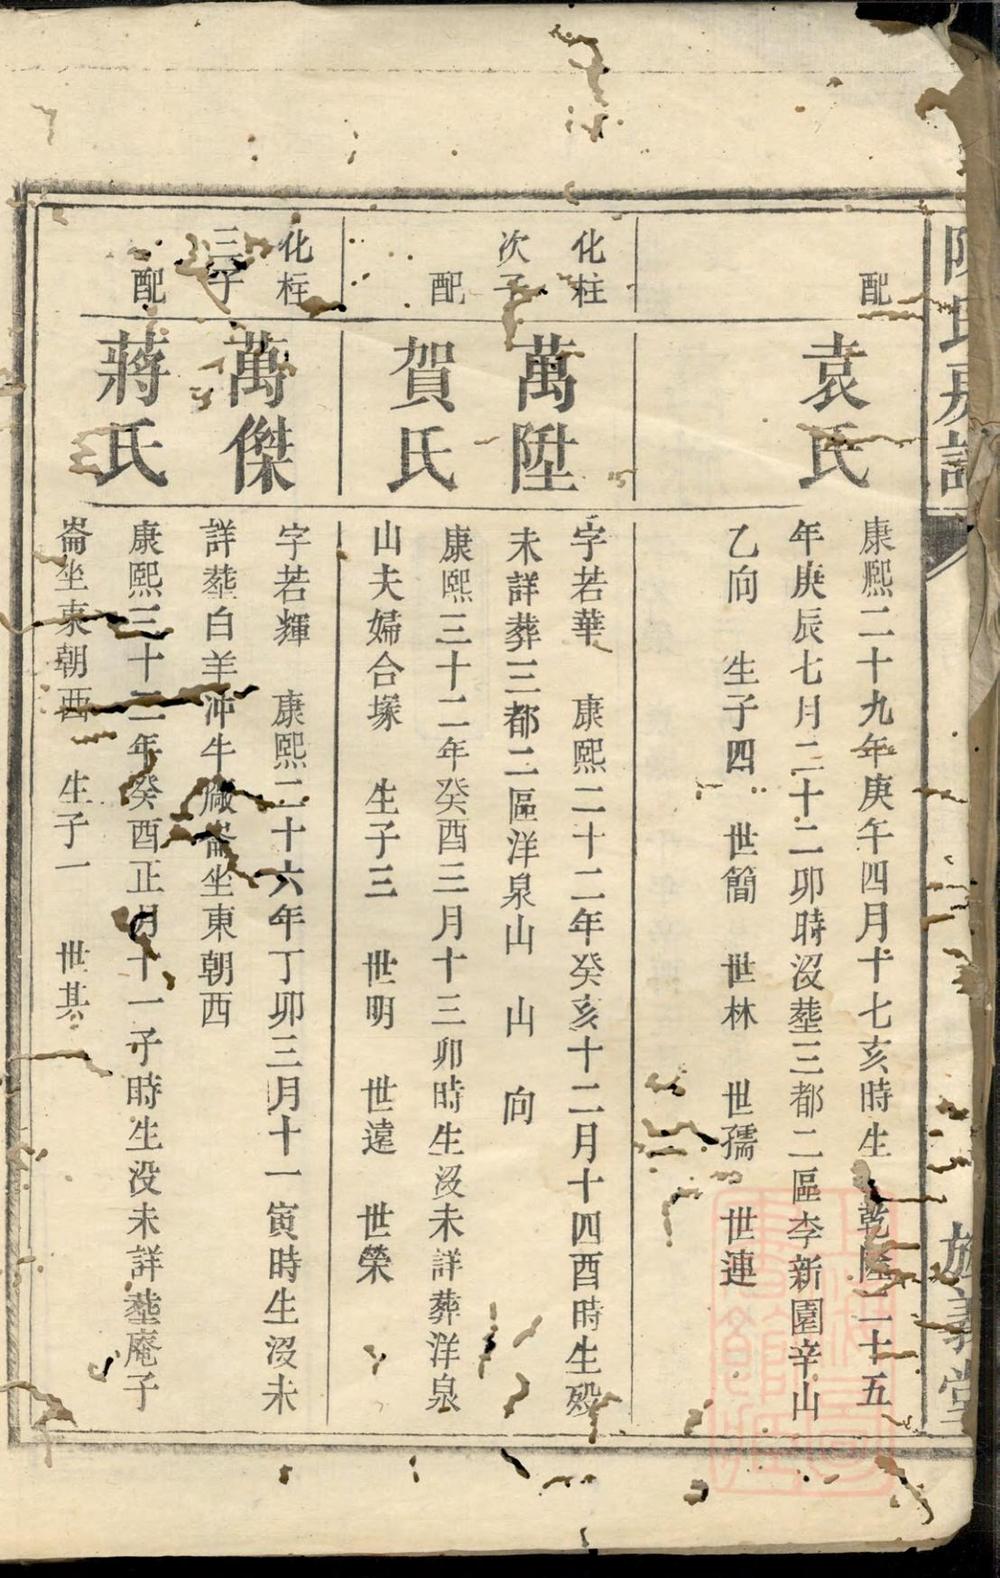 陳氏房譜
旌義堂
配
袁氏
康熙二十九年庚午四月十七亥時生 乾隆二十五
年庚辰七月二十二卯時沒塟三都二區李新園辛山
乙向 生子四 世簡 世林 世孺 世連
化柱
次子
萬陞
字若華 康熙二十二年癸亥十二月十四酉時生歿
未詳葬三都二區洋泉山 山 向
配
賀氏
康熙三十二年癸酉三月十三卯時生沒未詳葬洋泉
山夫婦合塚 生子三 世明 世遠 世榮
化柱
三子
萬傑
字若輝 康熙二十六年丁卯三月十一寅時生沒未
詳塟白羊沖牛廠崙坐東朝西
配
蔣氏
康熙三十二年癸酉正月十一子時生没未詳塟庵子
崙坐東朝西 生子一 世基